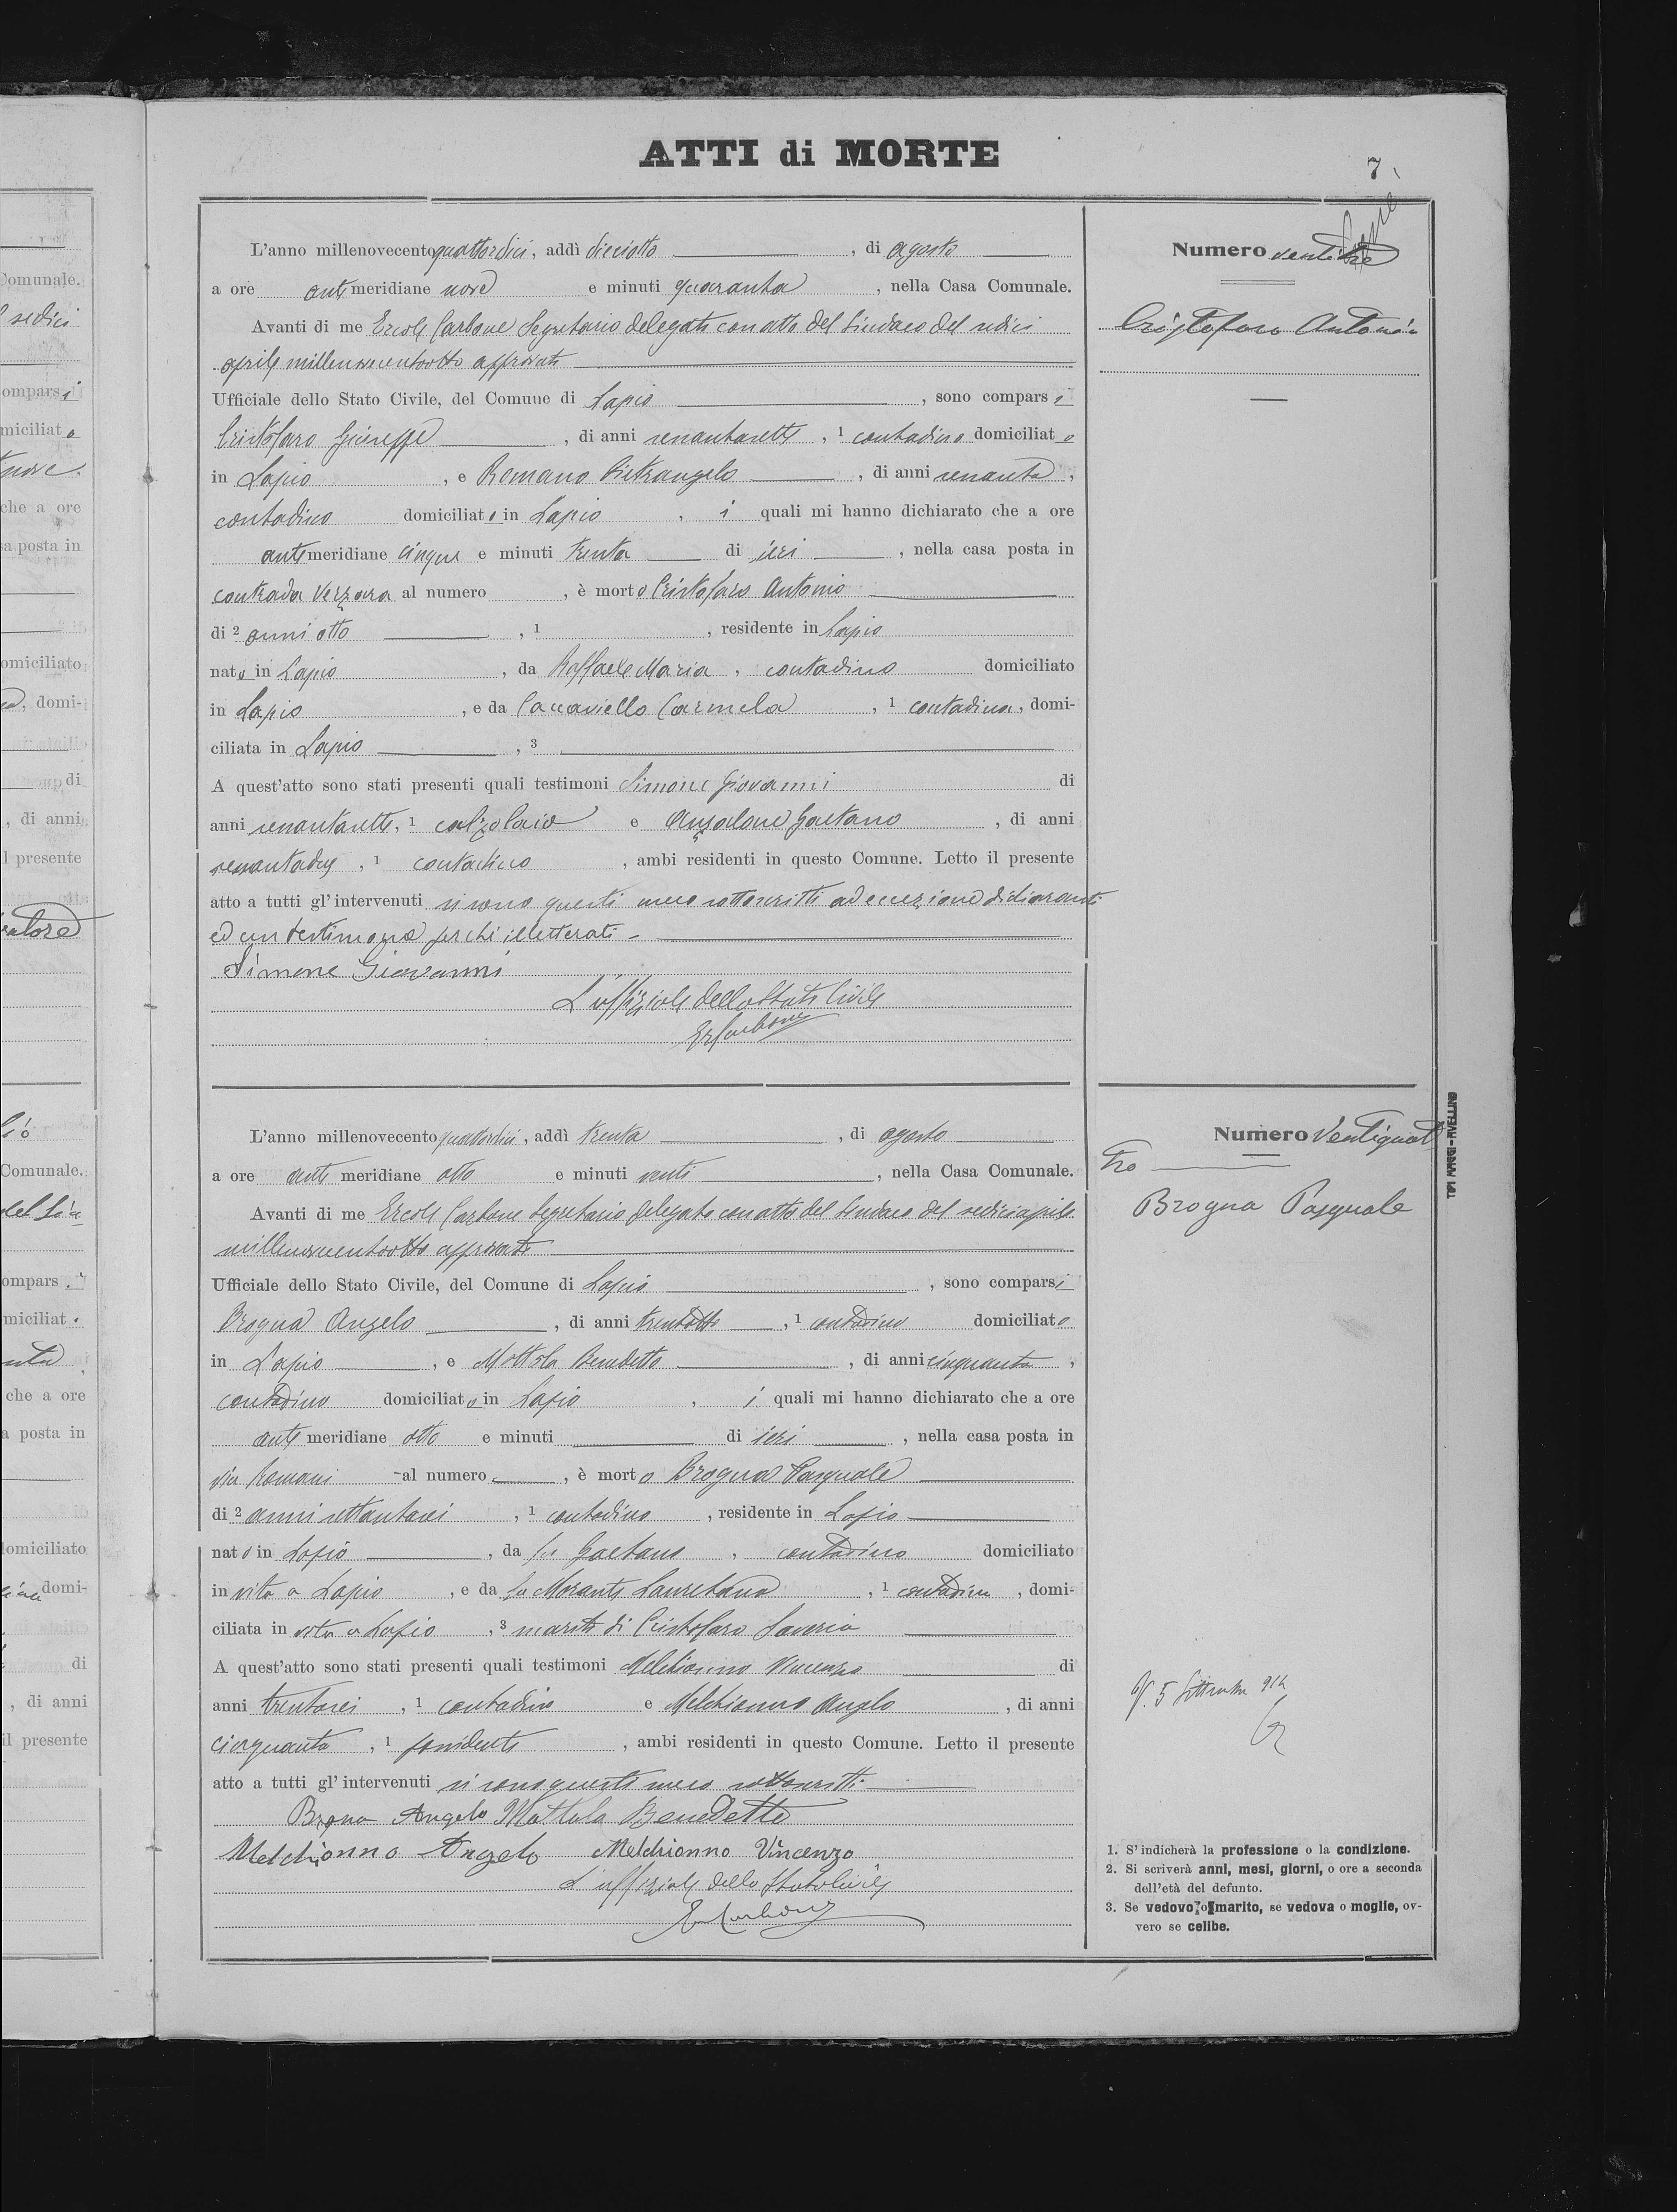 ATTI di MORTE
7
L'anno millenovecentoquattordici, addì diciotto, di agosto
a ore antimeridiane nove e minuti quaranta, nella Casa Comunale.
Avanti di me Ercole Carbone Segretario delegato con atto del Sindaco del sedici
aprile millenovecentootto approvato
Ufficiale dello Stato Civile, del Comune di Lapio, sono comparsi
Cristofaro Giuseppe, di anni sessantasette, 1 contadino domiciliato
in Lapio, e Romano Pietrangelo, di anni sessanta,
contadino domiciliato in Lapio, i quali mi hanno dichiarato che a ore
antimeridiane cinque e minuti trenta di ieri, nella casa posta in
contrada Verzara al numero, è morto Cristofaro Antonio
di 2 anni otto, 1, residente in Lapio
nato in Lapio, da Raffaele Maria, contadino domiciliato
in Lapio, e da Caccaviello Carmela, 1 contadina, domi-
ciliata in Lapio, 3
A quest'atto sono stati presenti quali testimoni Simone Giovanni di
anni sessantasette, 1 calzolaio e Anzalone Gaetano, di anni
sessantadue, 1 contadino, ambi residenti in questo Comune. Letto il presente
atto a tutti gl'intervenuti si sono questi meco sottoscritti ad eccezione dei dichiaranti
ed un testimone perchè illetterati
Simone Giovanni
L'uffiziale dello Stato Civile
E Carbone
Numero ventitre
Cristofaro Antonio
L'anno millenovecentoquattordici, addì trenta, di agosto
a ore antimeridiane otto e minuti venti, nella Casa Comunale.
Avanti di me Ercole Carbone Segretario delegato con atto del Sindaco del sedici aprile
millenovecentootto approvato
Ufficiale dello Stato Civile, del Comune di Lapio, sono comparsi
Brogna Angelo, di anni trentotto, 1 contadino domiciliato
in Lapio, e Mottola Benedetto, di anni cinquanta,
contadino domiciliato in Lapio, i quali mi hanno dichiarato che a ore
antimeridiane otto e minuti di ieri, nella casa posta in
via Romani al numero, è morto Brogna Pasquale
di 2 anni settantasei, 1 contadino, residente in Lapio
nato in Lapio, da fu Gaetano, contadino domiciliato
in vita a Lapio, e da fu Morante Lauretana, 1 contadina, domi-
ciliata in vita a Lapio, 3 marito di Cristofaro Saveria
A quest'atto sono stati presenti quali testimoni Melchionno Vincenzo di
anni trentasei, 1 contadino e Melchionno Angelo, di anni
cinquanta, 1 possidente, ambi residenti in questo Comune. Letto il presente
atto a tutti gl'intervenuti si sono questi meco sottoscritti.
Brogna Angelo Mottola Benedetto
Melchionno Angelo Melchionno Vincenzo
L'uffiziale dello Stato Civile
E Carbone
Numero Ventiquat
tro
Brogna Pasquale
5 Settembre 914
1. S'indicherà la professione o la condizione.
2. Si scriverà anni, mesi, giorni, o ore a seconda
dell'età del defunto.
3. Se vedovo o marito, se vedova o moglie, ov-
vero se celibe.